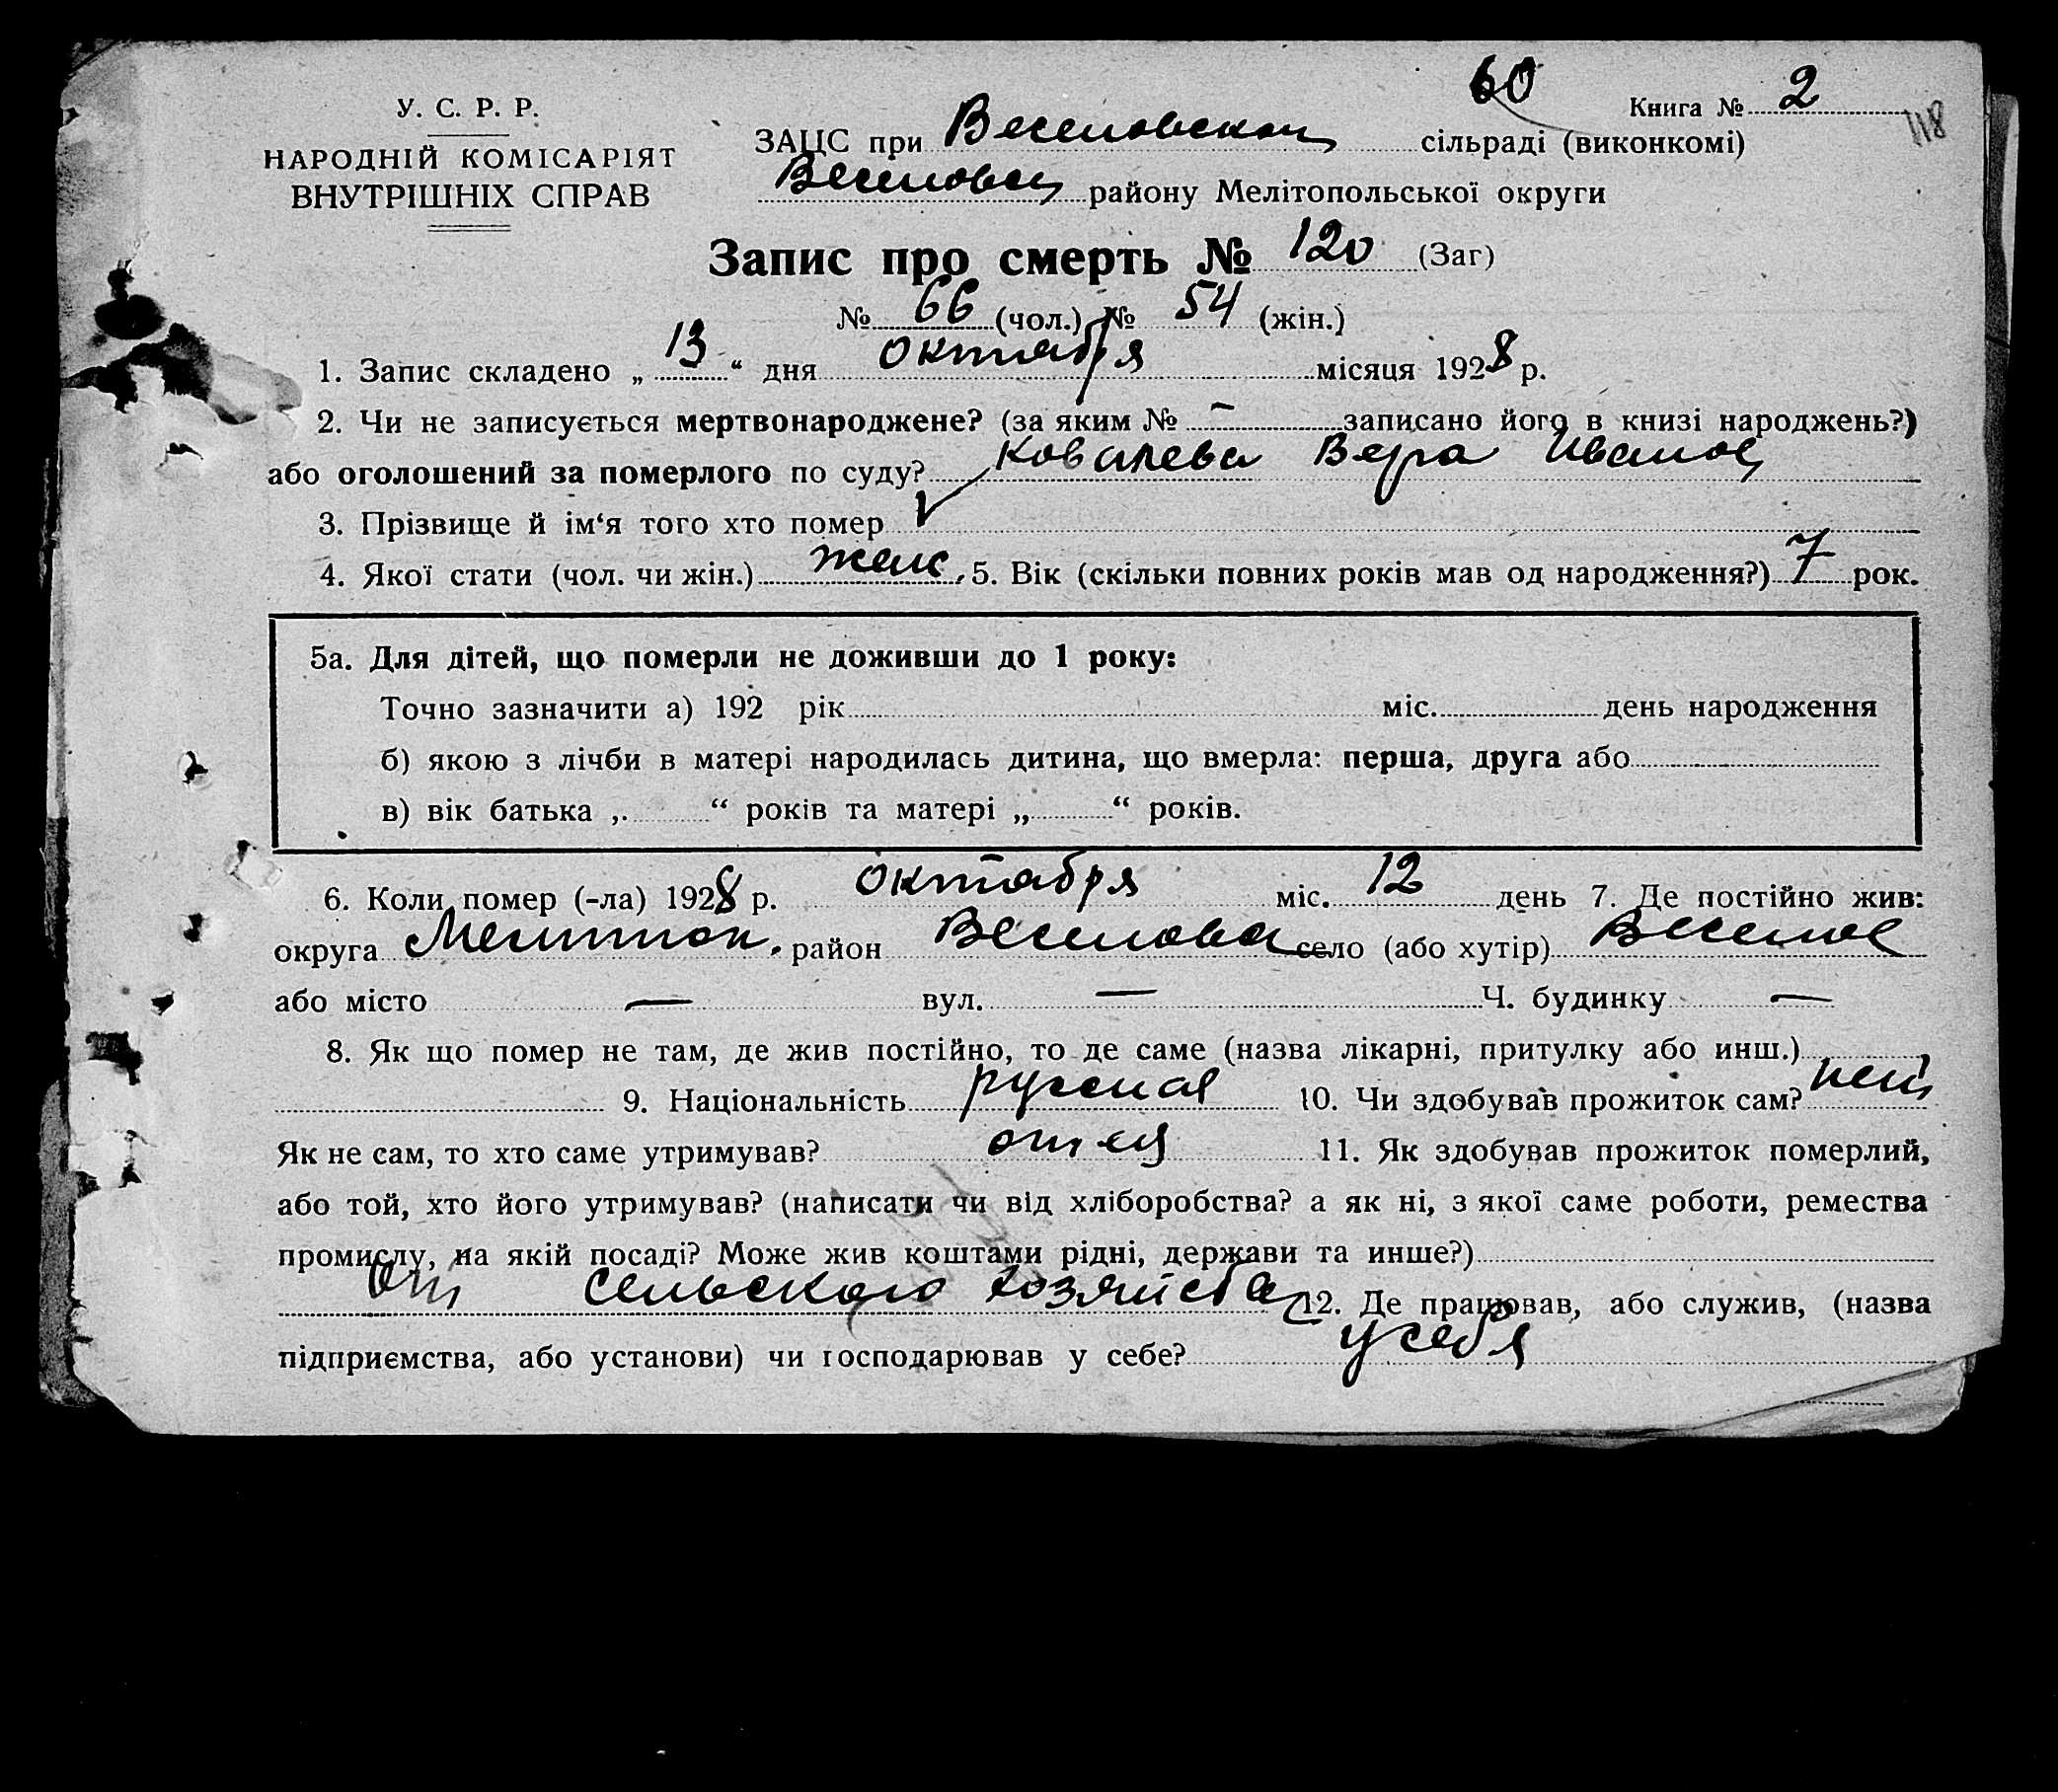 60
Книга № 2
118
У. С. Р. Р.
НАРОДНІЙ КОМІСАРІЯТ
ВНУТРІШНІХ СПРАВ
ЗАЦС при Веселовском сільраді (виконкомі)
Веселовск району Мелітопольської округи
Запис про смерть № 120 (Заг)
№ 66 (чол.) № 54 (жін.)
1. Запис складено „ 13 “ дня октября місяця 1928 р.
2. Чи не записується мертвонароджене? (за яким № — записано його в книзі народжень?)
або оголошений за померлого по суду? Ковалева Вера Иванов
3. Прізвище й ім‘я того хто помер
4. Якої стати (чол. чи жін.) женс, 5. Вік (скільки повних років мав од народження?) 7 рок.
5а. Для дітей, що померли не доживши до 1 року:
Точно зазначити а) 192 рік міс. день народження
б) якою з лічби в матері народилась дитина, що вмерла: перша, друга або
в) вік батька ,. “ років та матері „ “ років.
6. Коли помер (-ла) 1928 р. октября міс. 12 день 7. Де постійно жив:
округа Мелитоп. район Веселовск село (або хутір) Веселое
або місто — вул. — Ч. будинку —
8. Як що помер не там, де жив постійно, то де саме (назва лікарні, притулку або инш.)
9. Національність русская 10. Чи здобував прожиток сам? нет
Як не сам, то хто саме утримував? отец 11. Як здобував прожиток померлий,
або той, хто його утримував? (написати чи від хліборобства? а як ні, з якої саме роботи, ремества
промислу, на якій посаді? Може жив коштами рідні, держави та инше?)
От сельского хозяйства 12. Де працював, або служив, (назва
підприємства, або установи) чи господарював у себе? у себя